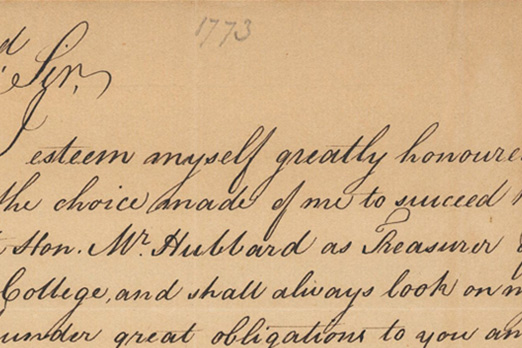 1773
Sir,
I esteem myself greatly honoure
the choice made of me to succeed
Hon. Mr. Hubbard as Treasurer
College, and shall always look on m
under great obligations to you an